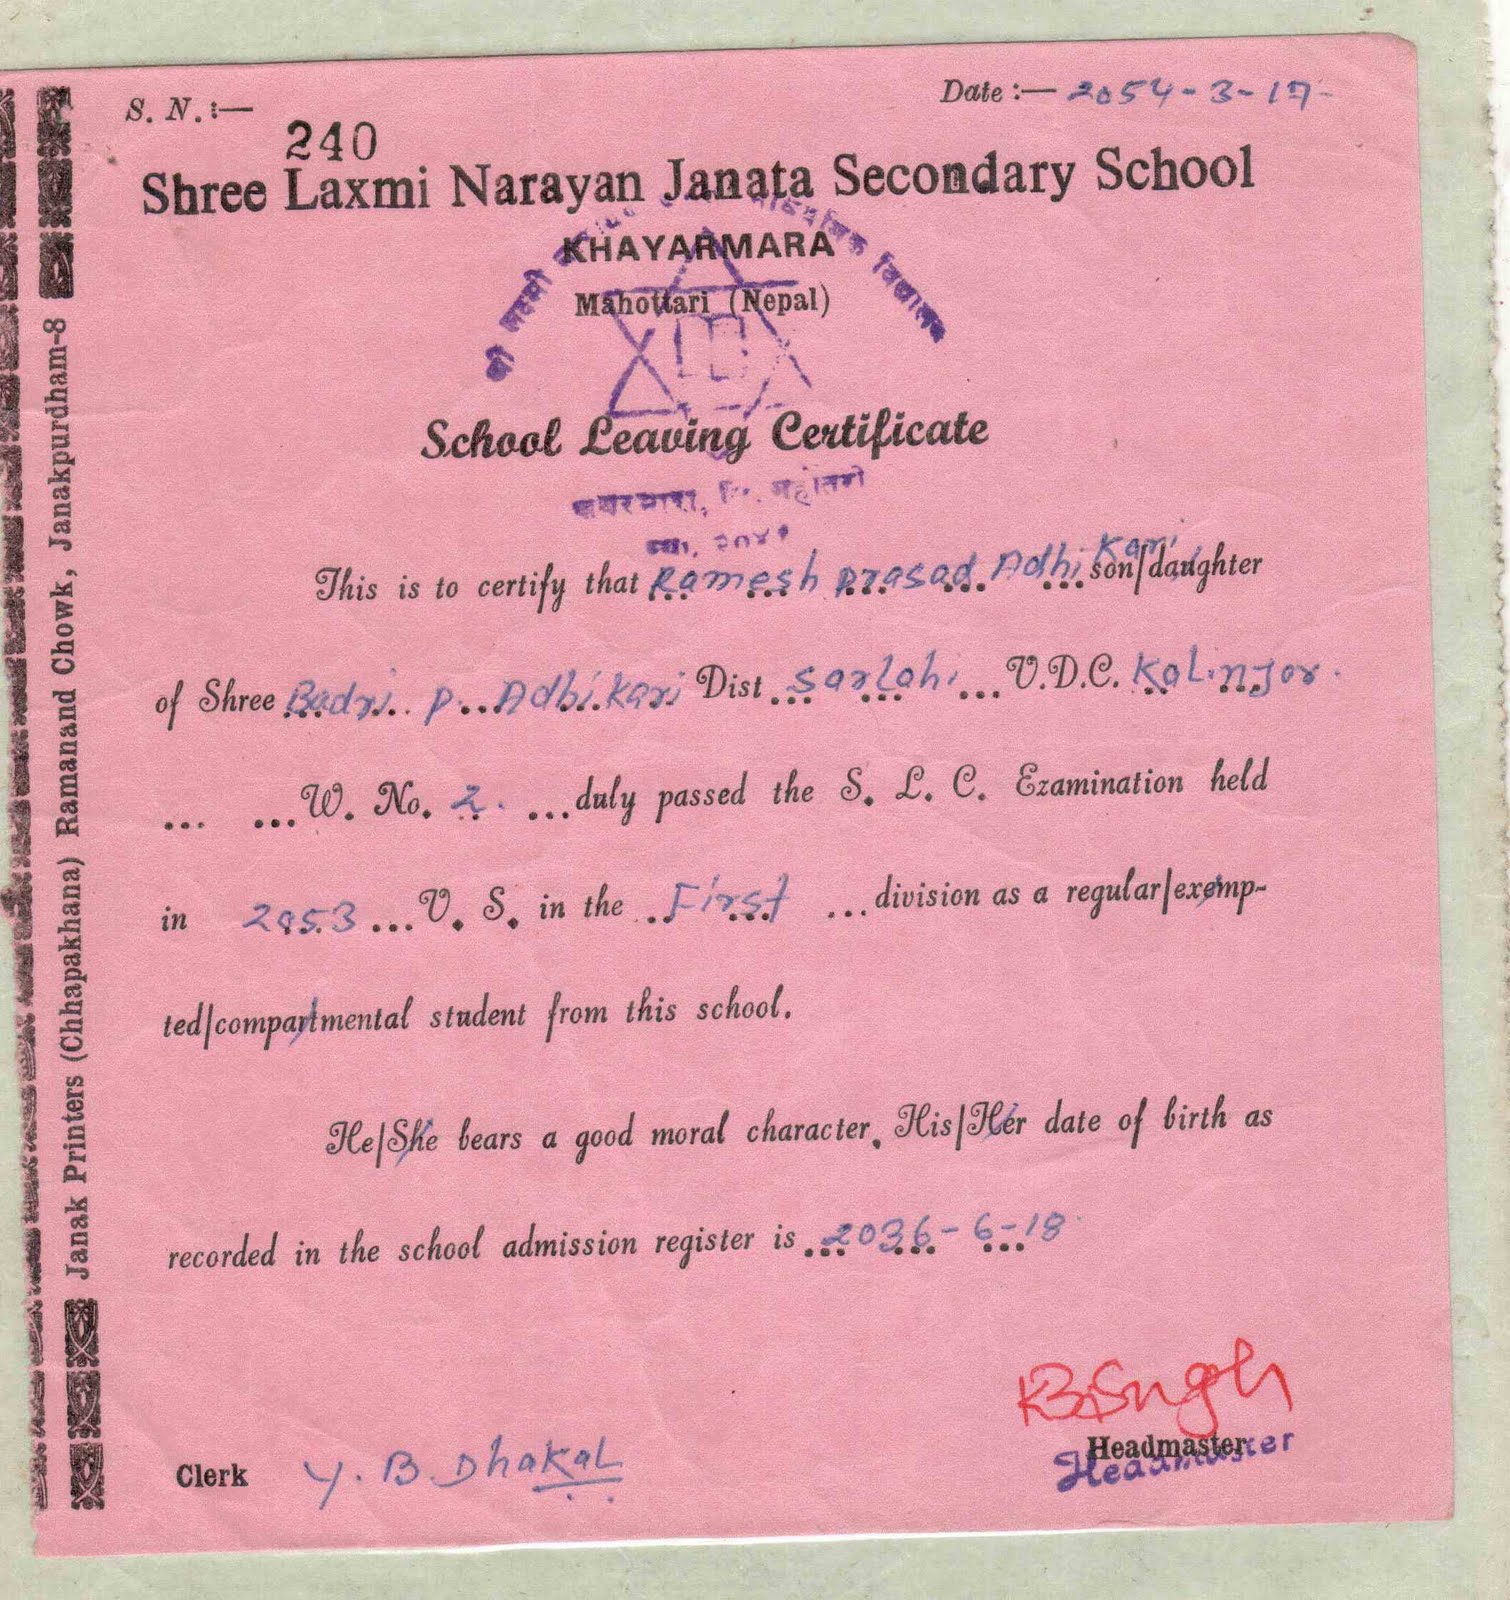 S. N. :— Date :— 2054-3-17-
240
Shree Laxmi Narayan Janata Secondary School
KHAYARMARA
Mahottari (Nepal)
श्री लक्ष्मी माध्यमिक विद्यालय
School Leaving Certificate
खयरमारा, जि. महोत्तरी
This is to certify that Ramesh Prasad Adhikari son/daughter
of Shree Badri P. Adhikari Dist Sarlahi ... V.D.C. Kalinjor.
... ... W. No. 2. ... duly passed the S. L. C. Examination held
in 2053 ... V. S. in the .. First ... division as a regular/exemp-
ted/compartmental student from this school.
He/She bears a good moral character. His/Her date of birth as
recorded in the school admission register is 2036-6-18
KBSingh
Headmaster
Headmaster
Clerk Y. B. Dhakal
Janak Printers (Chhapakhana) Ramanand Chowk, Janakpurdham-8